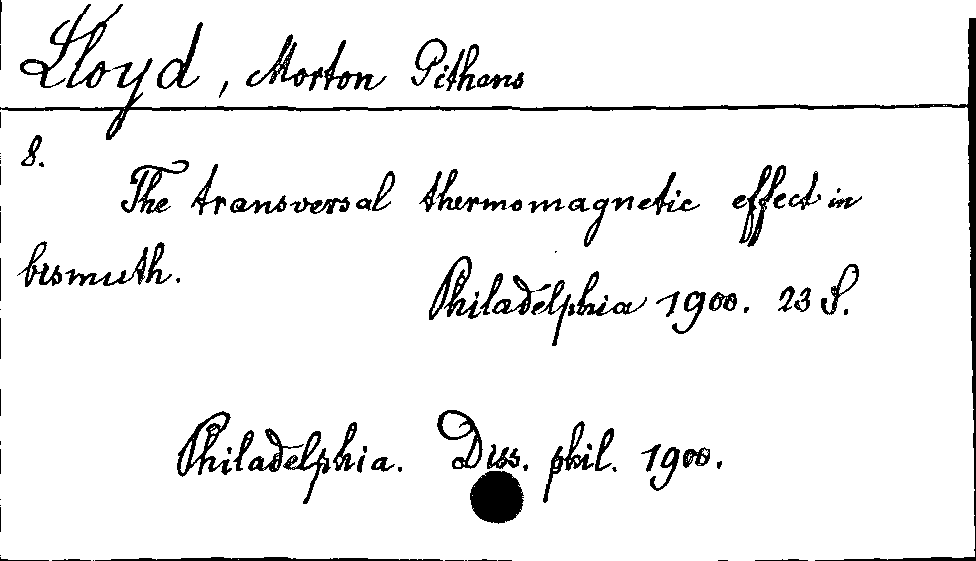 Lloyd, Morton Githens
8.
The transversal thermomagnetic effect in
bismuth.
Philadelphia 1900. 23 S.
Philadelphia. Diss. phil. 1900.